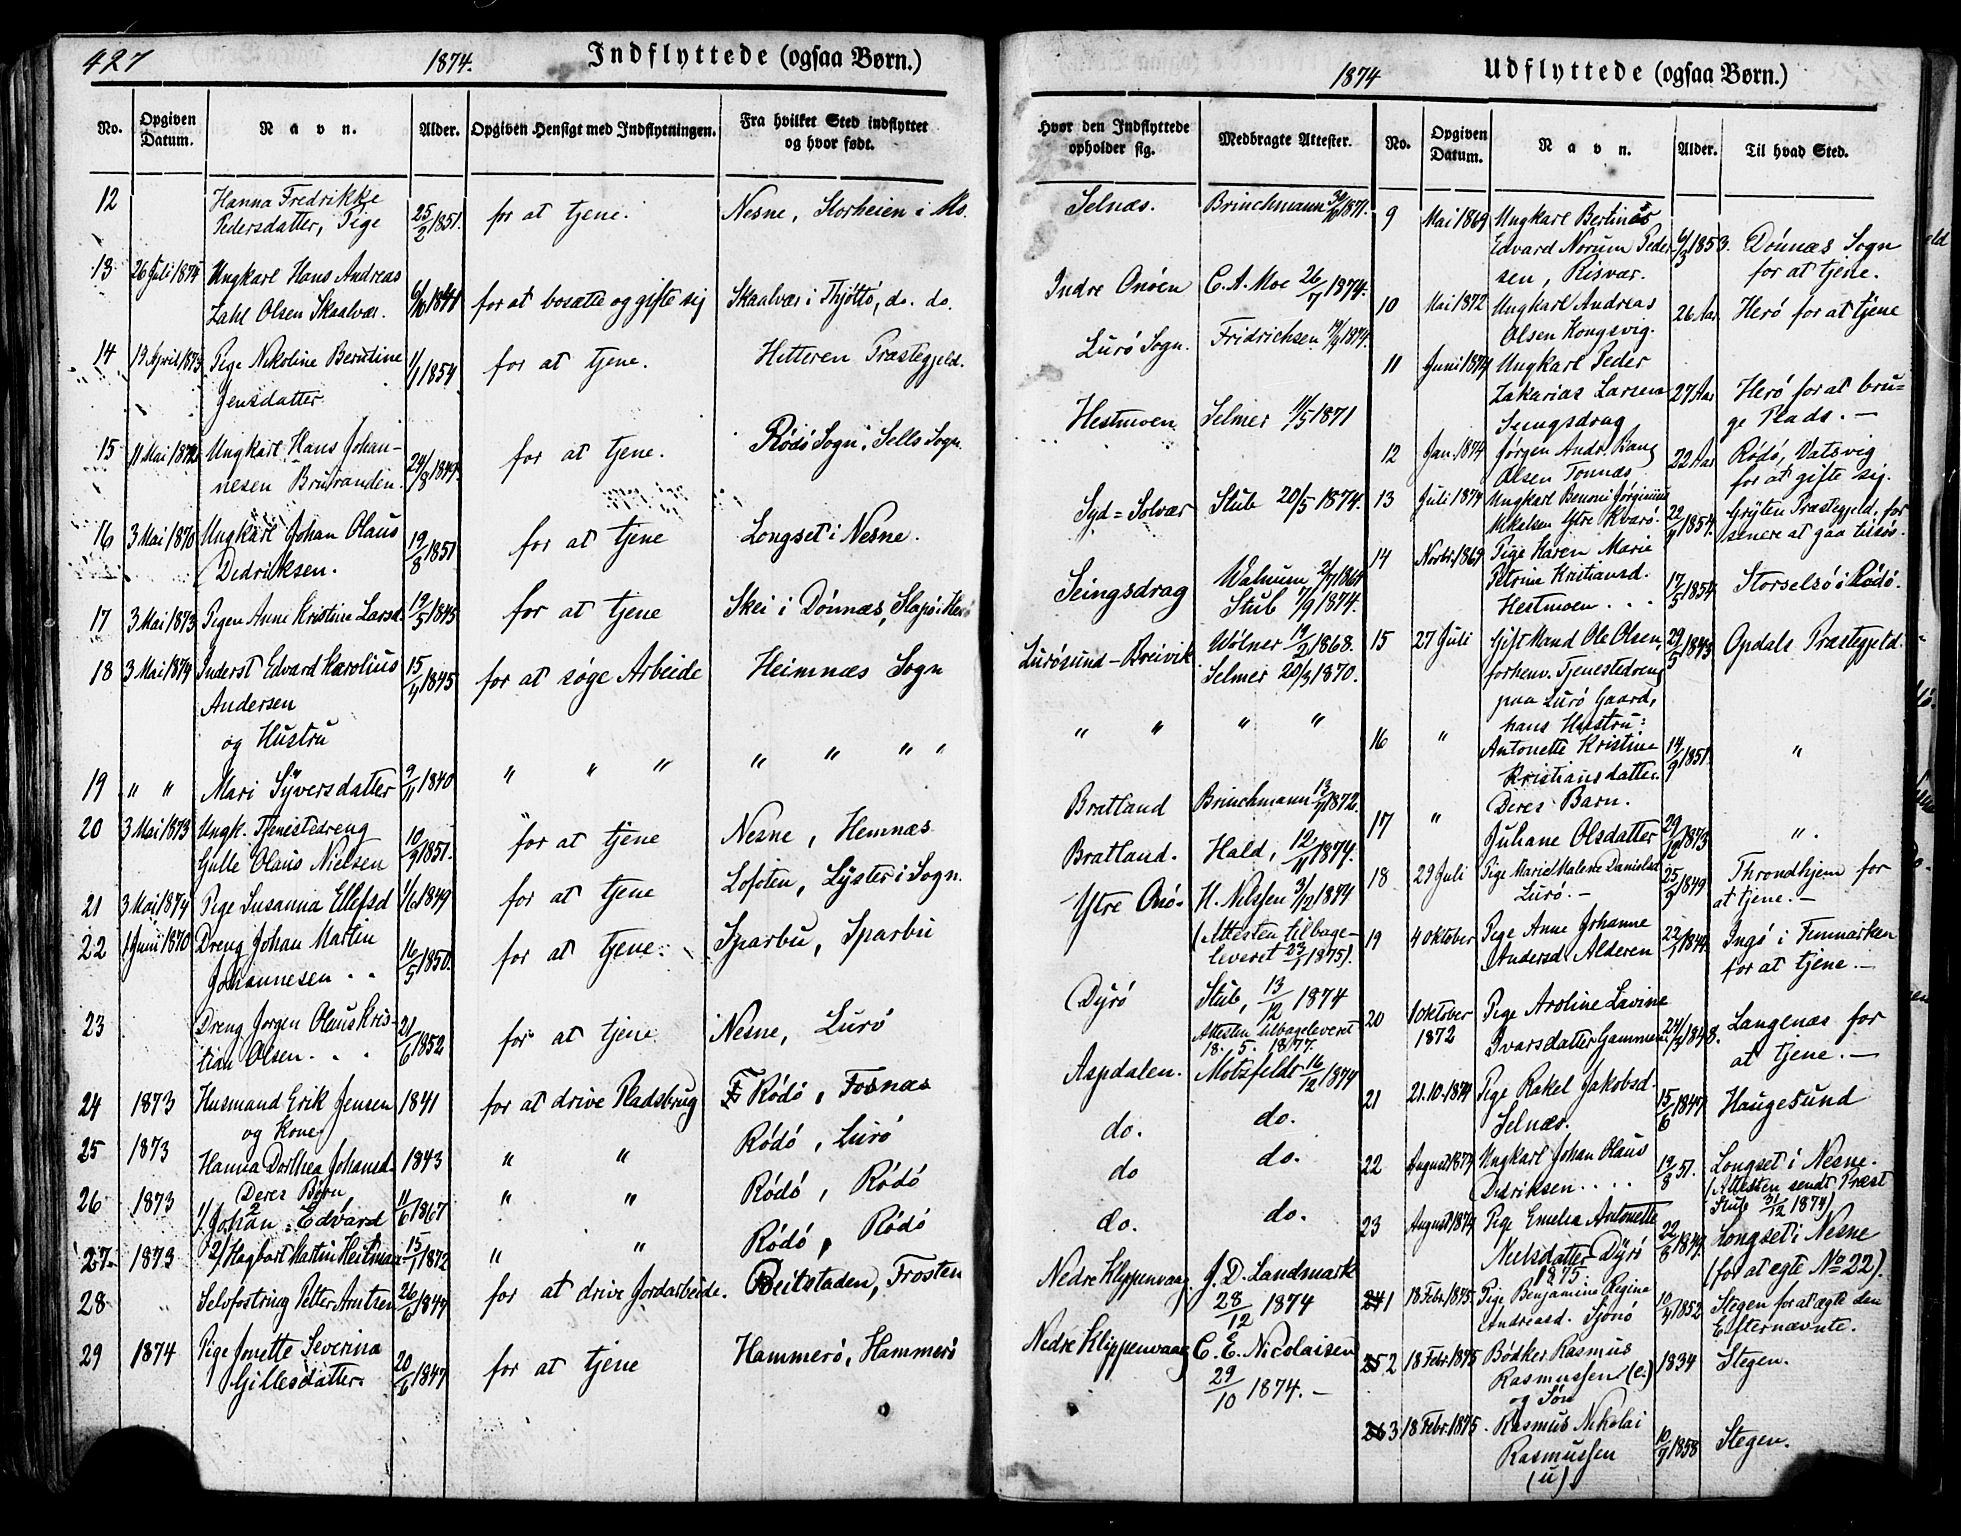 427
1874.
Indflyttede (ogsaa Børn.)
No.
Opgiven Datum.
Navn.
Alder.
Opgiven Hensigt med Indflytningen.
Fra hvilket Sted indflyttet og hvor født.
12 Hanna Fredrikke
Pedersdatter, Pige 25/2 1851. for at tjene. Nesne, Storheien i Mo.
13 26 Juli 1874 Ungkarl Hans Andreas
Zahl Olsen Skaalvær. 6/10 1841 for at bosætte og gifte sig Skaalvær i Thjøttø, do. do.
14 13 April 1873 Pige Nikoline Berntine
Jensdatter 1/1 1854 for at tjene. Hitteren Præstegjeld.
15 11 Mai 1872 Ungkarl Hans Johan-
nesen Brurandin 24/8 1849. for at tjene. Rødø Sogn, Sells Sogn.
16 3 Mai 1870 Ungkarl Johan Olaus
Dedriksen. 19/8 1851 for at tjene Longset i Nesne.
17 3 Mai 1873 Pigen Anne Kristine Larsd. 19/5 1845 for at tjene Skei i Dønnæs, Slapø i Herø
18 3 Mai 1874 Inderst Edvard Karolius
Andersen 15/4 1845 for at søge Arbeide Heimnæs Sogn
og Hustru
19 " " Mari Syversdatter 9/11 1840 " " " " " " "
20 3 Mai 1873 Ungk. Tjenestedreng
Gulle Olaus Nielsen 10/9 1851. for at tjene Nesne, Hemnæs
21 3 Mai 1874 Pige Susanna Ellefsd 1/6 1849 for at tjene Lofoten, Lyster i Sogn.
22 1 Juni 1870 Dreng Johan Martin
Johannesen . . 16/5 1850. for at tjene. Sparbu, Sparbu
23 Dreng Jørgen Olaus Kris-
tian Olsen. . . 21/6 1852 for at tjene Nesne, Lurø
24 1873 Husmand Erik Jensen 1841 for at drive Pladsbrug Rødø, Fosnæs
og Kone
25 1873 Hanna Dorthea Johansd. 1843 " " Rødø, Lurø
Deres Børn
26 1873 1/. Johan Edvard 11/6 1867 " " Rødø, Rødø
27. 1873 2/ Hagbart Martin Heitman 15/1 1872 " " Rødø, Rødø
28 Selvfostring Petter Arntsen 26/6 1847 for at drive Jordarbeide. Beitstaden, Frosten
29 1874 Pige Jonette Severina
Gillesdatter. 20/6 1847 for at tjene Hammerø, Hammerø
1874
Udflyttede (ogsaa Børn.)
Hvor den Indflyttede opholder sig.
Medbragte Attester.
No.
Opgiven Datum.
Navn.
Alder.
Til hvad Sted.
Selnæs. Brinchmann 1871.
Indre Onøen C. A. Moe 26/7 1874.
Lurø Sogn. Fridrichsen 1874.
Hestmoen Selmer 11/5 1871
Syd=Solvær Stub 20/5 1874.
Seingsdrag Walnum 2/7 1864
Stub 7/9 1874.
Lurøsund-Breivik Wölner 19/2 1868.
Selmer 20/3 1870.
" " " "
Bratland Brinchmann 13/7 1872.
Bratland. Hald, 12/11 1874.
Ytre Onø. H. Nilssen 3/12 1874
(Attesten tilbage-
leveret 23/1 1875).
Dyrø Stub, 13/12 1874
Attesten tilbageleveret
18. 5. 1877.
Aapdalen. Motzfeldt 16/12 1874
do. do.
do do.
do. do.
Nedre Klippenvaag J. D. Landmark
28/12 1874
Nedre Klippenvaag C. E. Nicolaisen
29/10 1874. -
9 Mai 1869 Ungkarl Bertinus
Edvard Norum Peder 6/3 1853. Dønnæs Sogn
sen, Risvær. for at tjene.
10 Mai 1872 Ungkarl Andreas
Olsen Kongsvig. 26 Aar Herø for at tjene
11 Juni 1874 Ungkarl Peder
Zakarias Larsen 27 Aar Herø for at bru=
Seingsdrag ge Plads. -
12 Jan. 1874 Jørgen Andr. Bang
Olsen Tonnæs 22 Aar Rødø, Vatsvig
for at gifte sig.
13 Juli 1874 Ungkarl Benoni Jørginius
Mikelsen Ytre Kvarø. 22/4 1854. Grytten Præstegjeld, for
senere at gaa tilsøs.
14 Novbr. 1869 Pige Karen Marie
Petrine Kristiansd.
Hestmoen . . . 17/5 1854 Storselsø i Rødø.
15 27 Juli Gift Mand Ole Olsen, 29/5 1843 Opdals Præstegjeld.
forhenv. Tjenestedreng
paa Lurø Gaard,
hans Hustru:
16 " Antonette Kristine
Kristiansdatter 14/9 1851. "
Deres Barn.
17 " Juhane Olsdatter 29/12 1873 ".
18 29 Juli Pige Marie Malene Danielsd
Lurø. - 25/9 1849 Throndhjem for
at tjene. -
19 4 Oktober Pige Anne Johanne
Andersd. Alderen 22/1 1844 Ingø i Finmarken
for at tjene. -
20 1 Oktober
1872 Pige Aroline Lavine
Ivarsdatter Gammen. 24/4 1848. Langenæs for
at tjene. -
21 21.10.1874 Pige Rakel Jakobsd.
Selnæs. 15/6 1847 Haugesund
22 August 1874 Ungkarl Johan Olaus
Dedriksen . . . . 19/8 51. Longset i Nesne.
(Attesten sendt Præst
Stub 31/12 1874)
23 August 1874 Pige Emelia Antonette
Nielsdatter Dyrø 22/8 1844. Longset i Nesne
(for at egte No 22).
1875
24 1 18 Febr. 1875 Pige Benjamine Regine
Andreasd. Sjonø 10/4 1852 Stegen for at ægte den
Efternævnte.
25 2 18 Febr. 1875 Bødker Rasmus
Rasmussen (e.) 1834 Stegen.
og Søn
26 3 18 Febr. 1875. Rasmus Nikolai
Rasmussen 10/9 1858 Stegen.
(u)